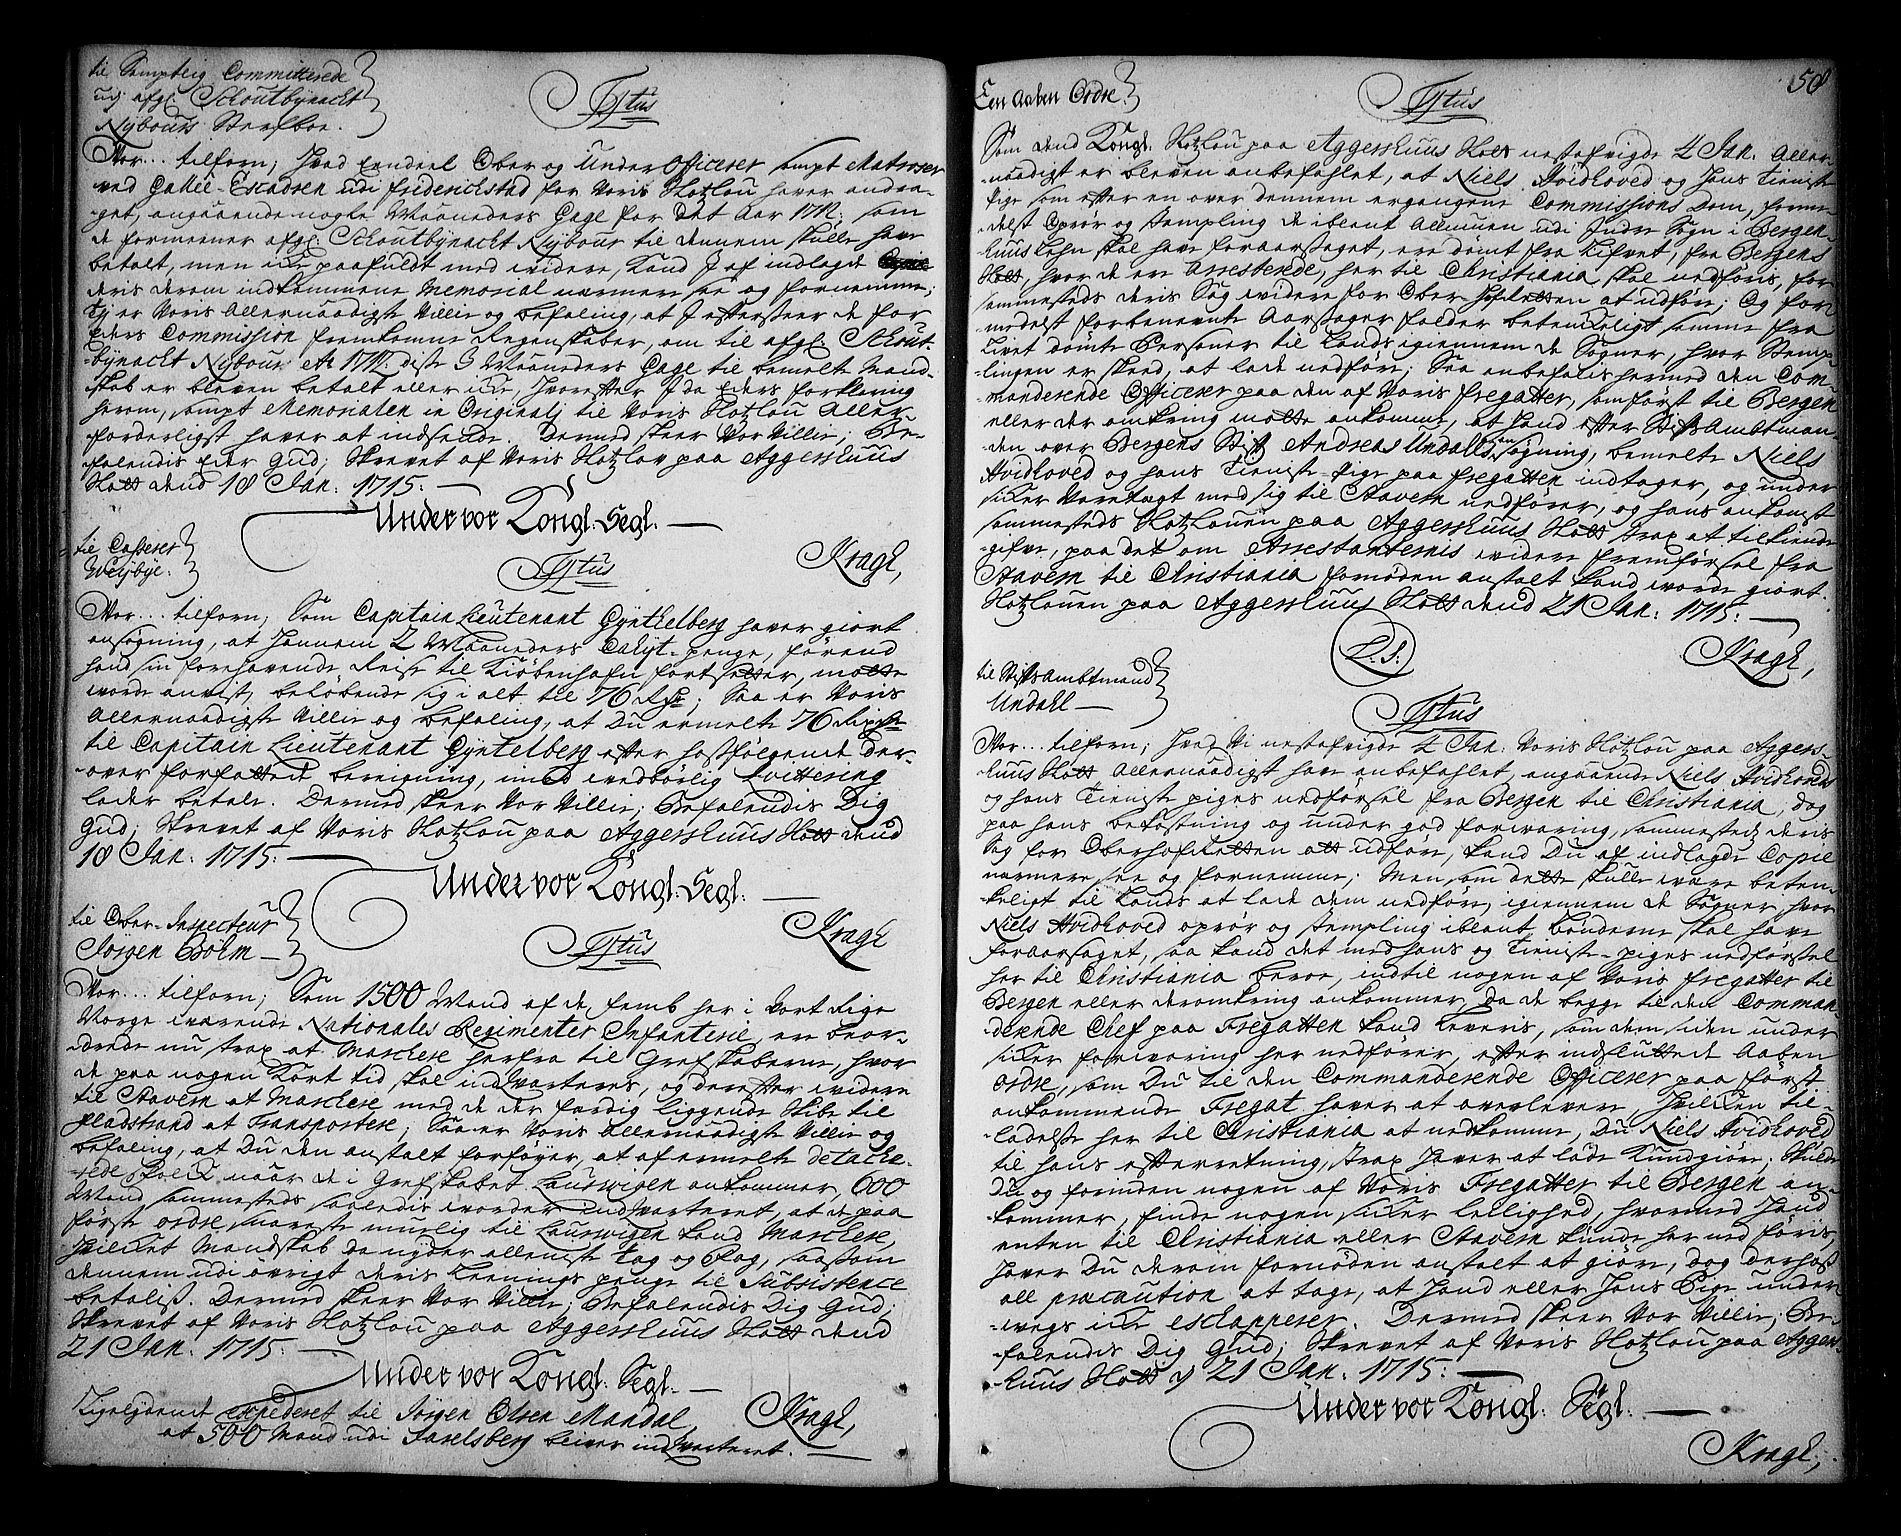 til Samptlig Committerede
udj afg. Schoutbynacht
Nybours Sterfboe.
Tjtus
Vor... tilforn; Hvad Eendeel Ober og Under Officerer sampt Matroser
ved Galleÿ-Escadren udi Friderichstad for Voris Slotzlou haver andra-
get, angaaende nogle Maaneders Gage for det Aar 1712: som
de formeener afg. Schoutbynacht Nybour til dennem skulle have
betalt, men icke paafuldt med videre, kand I af indlagde
deris derom indkommene Memorial nærmere see og fornemme;
Ty er Voris Allernaadigste Villie og befaling, at I efterseer de for
Eders Commission fremkomne Regenskaber, om til afg. Schout-
-bynacht Nybour etc 1712: disse 3 Maaneders Gage til bemelte Mand-
skab er bleven betalt eller icke, hvorefter I da Eders forklaring
herom, sampt Memorialen in Originalj til Voris Slotzlou Aller-
forderligst haver at indsende. Dermed skeer Vor Villie; Be-
falendis Eder Gud; Skrevet af Voris Slotzlov paa Aggershuus
Slott dend 18 Jan: 1715:
Under vor Kongl. Segl.
Kragh,
til Casserer
Weÿbÿe.
Tjtus
Vor... tilforn; Som Capitain Lieutenant Gÿntelberg haver giort
ansøgning, at hannem 2 Maaneders Calÿt-penge, førend
hand sin forehavende Reise til Kiøbenhafn fortsetter, motte
vorde anvist, beløbende sig i alt til 76 Rdr; Saa er Voris
Allernaadigste Villie og befaling, at Du ermelte 76 Rixdr
til Capitain Lieutenant Gÿntelberg efter hostfølgende der-
-over forfattede bereigning, imod vedbørlig Qvittering
lader betale. Dermed skeer Vor Villie; Befalendis Dig
Gud; Skrevet af Voris Slotzlou paa Aggershuus Slott dend
18 Jan: 1715:
Under vor Kongl. Segl.
Kragh
til Ober-Inspecteur
Jørgen Bølm
Tjtus
Vor... tilforn; Som 1500 Mand af de femb her i Vort Rige
Norge værende Nationales Regimenter Infanterie, er beor-
-drede nu strax at Marchere herfra til Grefskaberne, hvor
de paa nogen kort tid skal indqvarteres, og derefter videre
til Stavern at Marchere med de der færdig liggende Skibe til
Fladstrand at Transportere; Saa er Voris Allernaadigste Villie og
befaling, at Du den anstalt forføyer, at af ermelte detache-
-rede folck naar de i Grefskabet Laurwigen ankommer, 600
Mand sammesteds saaledis vorder indqvarteret, at de paa
første ordre snareste muelig til Laurwigen kand Marchere,
hvilcket Mandskab da nyder alleeniste tag og Dag, saasom
dennem udi øvrigt deris Leenings penge til Subsistence
betalis. Dermed skeer Vor Villie; Befalendis Dig Gud;
Skrevet af Voris Slotzlou paa Aggershuus Slott dend
21 Jan: 1715:
Under vor Kongl. Segl.
Kragh,
Ligelydende expederet til Jørgen Olsen Mandal,
at 500 Mand udi Jarelsberg bliver indqvarteret.
50
Een Aaben Ordre.
Tjtus
Som dend Kongl. Slotzlou paa Aggershuus Slott nestafvigte 4 Jan. Aller-
-naadigst er bleven anbefahlet, at Niels Hvidhoved og hans Tieniste
Pige som efter en over dennem ergangene Commissions Dom, forme-
delst Oprør og stempling de iblant Allmuen udi Indre Sogn i Bergen-
huus Lehn skal have foraarsaget, ere dømt fra Lifvet, fra Bergens
Slott, hvor de ere Arresterede, her til Christiania skal nedføris, for
sammesteds deris Sag videre for Ober-hofRetten at udføre; Og for-
medelst forbenevnte Aarsager falder betenckeligt samme fra
Livet dømte Personer til Lands igiennem de Sogner, hvor Stemp-
-lingen er skeed, at lade nedføre; Saa anbefalis hermed den Com-
manderende Officerer paa den af Voris Fregatter, som først til Bergen
eller der omkring motte ankomme, at hand efter Stifts Ambtman-
den over Bergens Stift Andreas Undalls ansøgning, bemelte Niels
Hvidhoved og hans Tieniste-Pige paa Fregatten indtager, og under
sicker Varetægt med sig til Stavern nedfører, og hans ankomst
sammesteds Slotzlouen paa Aggershuus Slott strax at tilkiende
gifve, paa det om Arrestanternis videre fremførsel fra
Stavern til Christiania fornøden anstalt kand vorde giort.
Slotzlouen paa Aggershuus Slott dend 21 Jan: 1715:
L.S:
Kragh,
til StiftsAmbtmand
Undall
Tjtus
Vor... tilforn; Hvad Vi nestafvigte 4 Jan. Voris Slotzlou paa Aggers-
huus Slott Allernaadigst have anbefahlet, angaaende Niels Hvidhoveds
og hans Tieniste piges nedførsel fra Bergen til Christiania, dog
paa hans bekostning og under god forvaring, sammestedz deris
Sag for OberhofRetten att udføre, kand Du af indlagde Copie
nærmere see og fornemme; Men som dette skulle være beten-
keligt til Lands at lade dem nedføre, igiennem de Sogner hvor
Niels Hvidhoved oprør og stempling iblant bønderne skal have
foraarsaget, saa kand det med hans og Tieniste-piges nedførsel
her til Christiania beroe, indtil nogen af Voris Fregatter til
Bergen eller deromkring ankommer, da de begge til den Comman-
derende Chef paa Fregatten kand leveris, som dem siden under
sicker forvaring her nedfører, efter indsluttede Aaben
Ordre, som Du til den Commanderende Officerer paa først
ankommende Fregat haver at overlevere, hvilcken til-
-ladelse her til Christiania at nedkomme, Du Niels Hvidhoved
til hans efterretning, strax haver at lade kundgiøre; Skulde
Du og forinden nogen af Voris Fregatter til Bergen an-
kommer, finde nogen sicker leilighed, hvormed hand
enten til Christiania eller Stavern kunde her ned føris,
haver Du derom fornøden anstalt at giøre, dog derhos
all præcaution at tage, at hand eller hans Pige under-
-vegs icke eschapperer. Dermed skeer Vor Villie; Be-
-falendis Dig Gud; Skrevet af Voris Slotzlou paa Agger-
-huus Slott dj 21 Jan: 1715:
Under vor Kongl. Segl.
Kragh,